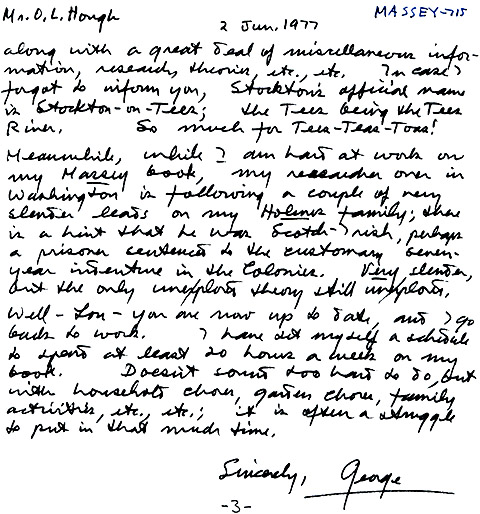 Mr. O. L. Hough
2 Jun. 1977
MASSEY-715
along with a great deal of miscellaneous infor-
mation, research, theories, etc., etc. In case I
forgot to inform you, Stockton's official name
is Stockton-on-Tees; the Tees being the Tees
River. So much for Tees-Teas-Toas!
Meanwhile, while I am hard at work on
my Massey book, my researcher over in
Washington is following a couple of very
slender leads on my Holmes family; there
is a hint that he was Scotch-Irish, perhaps
a prisoner sentenced to the customary seven-
year indenture in the Colonies. Very slender,
but the only theory still unexplored.
Well - Lon - you are now up to date, and I go
back to work. I have set myself a schedule
to spend at least 20 hours a week on my
book. Doesn't sound too hard to do, but
with household chores, garden chores, family
activities, etc., etc.; it is often a struggle
to put in that much time.
Sincerely, George
-3-